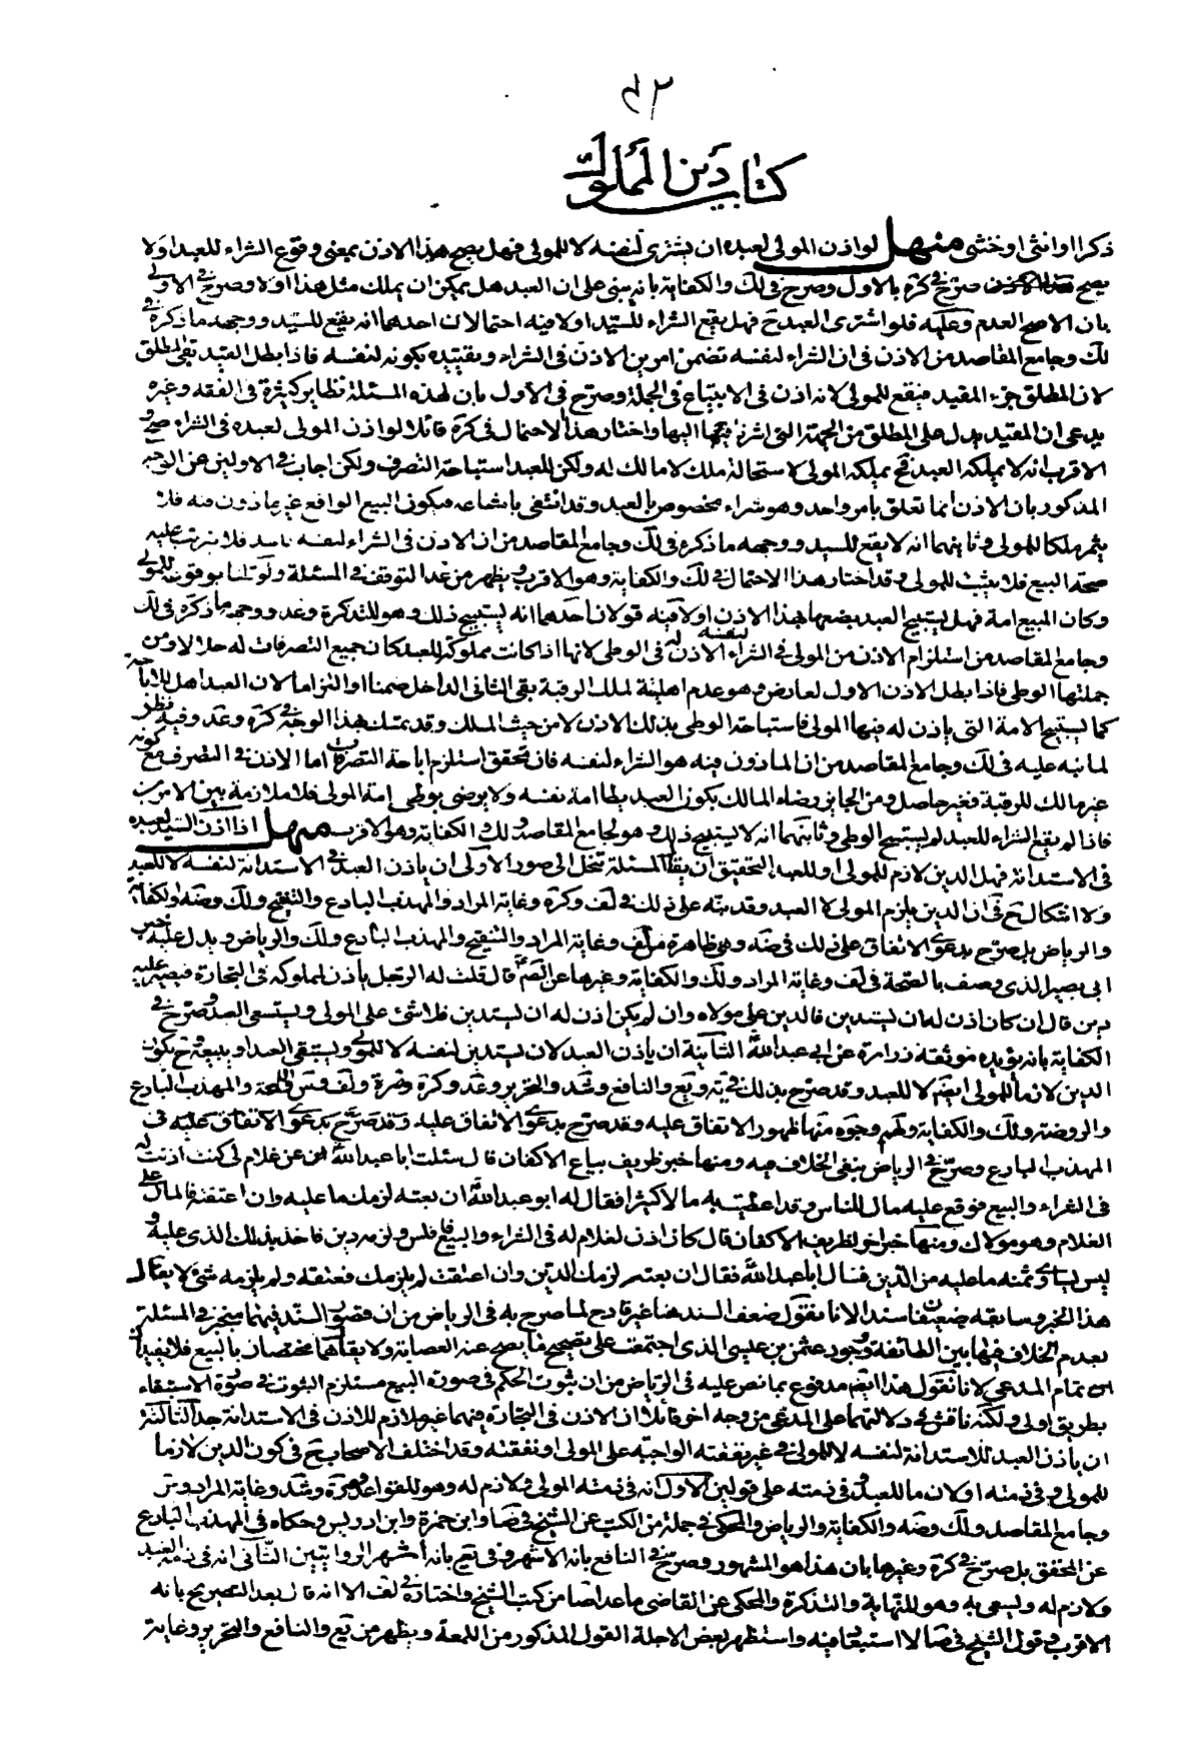 ٤٢
كتاب دين المملوك
ذكرا او انثى او خنثى منهل لو اذن المولى لعبده ان يشترى لنفسه لا للمولى فهل يصح هذا الاذن بمعنى وقوع الشراء للعبد او لا
يصح صرّح فى كرة بالاول وصرح فى لك والكفاية بانه يبنى على ان العبد هل يمكن ان يملك مثل هذا او لا وصرح فى الاولى
بان الاصح العدم وعليه فلو اشترى العبد ح فهل يقع الشراء للسيد او لا فيه احتمالان احدهما انه يقع للسيّد ووجهه ما ذكره فى
لك وجامع المقاصد من الاذن فى ان الشراء لنفسه تضمن امرين الاذن فى الشراء وتقييده بكونه لنفسه فاذا بطل القيد بقى المطلق
لان المطلق جزء المقيد فيقع للمولى لانه اذن فى الابتياع فى الجملة وصرح فى الاول بان لهذه المسئلة نظاير كثيرة فى الفقه وغيره
يدعى ان المقيد يدل على المطلق من الجهة التى اشرنا اليها واختار هذا الاحتمال فى كرة قائلا لو اذن المولى لعبده فى الشراء صح و
الاقرب انه لا يملكه العبد ثم يملكه المولى لاستحالة ملك لا مالك له ولكن للعبد استباحة التصرف ولكن اجاب فى الاولين عن الوجه
المذكور بان الاذن انما تعلق بامر واحد وهو شراء مخصوص بالعبد وقد انتفى بامتناعه فيكون البيع الواقع غير ماذون فيه فلا
يثمر ملكا للمولى وثانيهما انه لا يقع للسيد ووجهه ما ذكره فى لك وجامع المقاصد من ان الاذن فى الشراء لنفسه فاسد فلا يترتب عليه
صحة البيع فلا يثبت للمولى وقد اختار هذا الاحتمال فى لك والكفاية وهو الاقرب ويظهر من عد التوقف فى المسئلة ولو قلنا بوقوعه للمولى
وكان المبيع امة فهل يستبيح العبد بضعها بهذا الاذن او لا فيه قولان احدهما انه يستبيح ذلك وهو للتذكرة وعد ووجهه ما ذكره فى لك
وجامع المقاصد من استلزام الاذن من المولى فى الشراء لنفسه الاذن له فى الوطى لانها اذا كانت مملوكة للعبد كان جميع التصرفات له حلالا ومن
جملتها الوطى فاذا بطل الاذن الاول لعارض وهو عدم اهلية لملك الرقبة بقى الثانى الداخل ضمنا او التزاما لان العبد اهل للاباحة
كما يستبيح الامة التى ياذن له فيها المولى فاستباحة الوطى بذلك الاذن لا من حيث الملك وقد تمسك بهذا الوجه فى كرة وعد وفيه نظر
لما نبه عليه فى لك وجامع المقاصد من ان الماذون فيه هو الشراء لنفسه فان تحقق استلزم اباحة التصرفات اما الاذن فى التصرف مع كونه
غير مالك للرقبة فغير حاصل ومن الجايز رضاء المالك بكون العبد يطا امة نفسه ولا يرضى بوطى امة المولى فلا ملازمة بين الامرين
فاذا لم يقع الشراء للعبد لم يستبح الوطى وثانيهما انه لا يستبيح ذلك وهو لجامع المقاصد ولك والكفاية وهو الاقرب منهل اذا اذن السيد لعبده
فى الاستدانة فهل الدين لازم للمولى او للعبد التحقيق ان يقال المسئلة تنحل الى صور الاولى ان ياذن العبد فى الاستدانة لنفسه لا للعبد
ولا اشكال ح فى ان الدين يلزم المولى لا العبد وقد نبّه على ذلك فى لف وكرة وغاية المراد والمهذب البارع والتنقيح ولك وضه والكفاية
والرياض بل صرّح بدعوى الاتفاق على ذلك فى ضه وهى ظاهرة من لف وغاية المراد والتنقيح والمهذب البارع ولك والرياض ويدل عليه خبر
ابى بصير الذى وصف بالصحة فى لف وغاية المراد ولك والكفاية وغيرها عن الصم قال قلت له الرجل ياذن لمملوكه فى التجارة فيصير عليه
دين قال ان كان اذن له ان يستدين فالدين على مولاه وان لم يكن اذن له ان يستدين فلا شئ على المولى ويستسعى العبد وصرّح فى
الكفاية بانه يؤيده موثقة زرارة عن ابى عبد الله الثانية ان ياذن العبد لان يستدين لنفسه لا للمولى ويستبقى العبد او يبيعه وح يكون
الدين لازما للمولى ايضا لا للعبد وقد صرّح بذلك فى يه ويع والنافع وشد والتحرير وعد وكرة وتبصرة ولف وس واللمعة والمهذب البارع
والروضة ولك والكفاية ولهم وجوه منها ظهور الاتفاق عليه وقد صرّح بدعوى الاتفاق عليه وقد صرّح بدعوى الاتفاق عليه فى
المهذب البارع وصرّح فى الرياض بنفى الخلاف فيه ومنها خبر ظريف بياع الاكفان قال سئلت ابا عبد الله عن غلام لى كنت اذنت له
فى الشراء والبيع فوقع عليه مال للناس وقد اعطيت به مالا كثيرا فقال له ابو عبد الله ان بعته لزمك ما عليه وان اعتقته فالمال على
الغلام وهو مولاك ومنها خبر اخر لظريف الاكفان قال كان اذن لغلام له فى الشراء والبيع فافلس ولزمه دين فاخذ بذلك الذى عليه و
ليس يساوى ثمنه ما عليه من الدّين فسال ابا عبد الله فقال ان بعته لزمك الدين وان اعتقت لم يلزمك فعتقه ولم يلزمه شئ لا يقال
هذا الخبر وسابقه ضعيفا سندا لانا نقول ضعف السند هنا غير قادح لما صرح به فى الرياض من ان قصور السّند فيهما منجبر فى المسئلة
بعدم الخلاف فيها بين الطائفة ووجود عثمن بن عيسى الذى اجتمعت على تصحيح ما يصح عنه العصابة ولا يقال هما مختصان بالبيع فلا يفيدان
تمام المدعى لانا نقول هذا ايضا مدفوع بما نص عليه فى الرياض من ان ثبوت الحكم فى صورة البيع مستلزم الثبوت فى صورة الاستبقاء
بطريق اولى ولكنه ناقش فى دلالتهما على المدعى من وجه اخر قائلا ان الاذن فى التجارة فيهما غير ملازم للاذن فى الاستدانة جدا الثالثة
ان ياذن العبد للاستدانة لنفسه لا للمولى فى غير نفقته الواجبة على المولى او نفقته وقد اختلف الاصحاب ح فى كون الدين لازما
للمولى وفى ذمته او لازما للعبد وفى ذمته على قولين الاول انه فى ذمة المولى ولازم له وهو للقواعد وكرة وشد وغاية المراد وس
وجامع المقاصد ولك وضه والكفاية والرياض والمحكى فى جملة من الكتب عن الشيخ فى صا وابن حمزة وابن ادريس وحكاه فى المهذب البارع
عن المحقق بل صرّح فى كرة وغيرها بان هذا هو المشهور وصرح فى النافع بانه الاشهر وفى يع بانه اشهر الروايتين الثانى انه فى ذمة العبد
ولازم له ويسعى به وهو للنهاية والتذكرة والمحكى عن القاضى وما عدا صا من كتب الشيخ واختاره فى لف الا انه قال بعد التصريح بانه
الاقرب وقول الشيخ فى صا لا استبعاد فيه واستظهر بعض الاجلة القول المذكور من اللمعة ويظهر من يع والنافع والتحرير وغاية